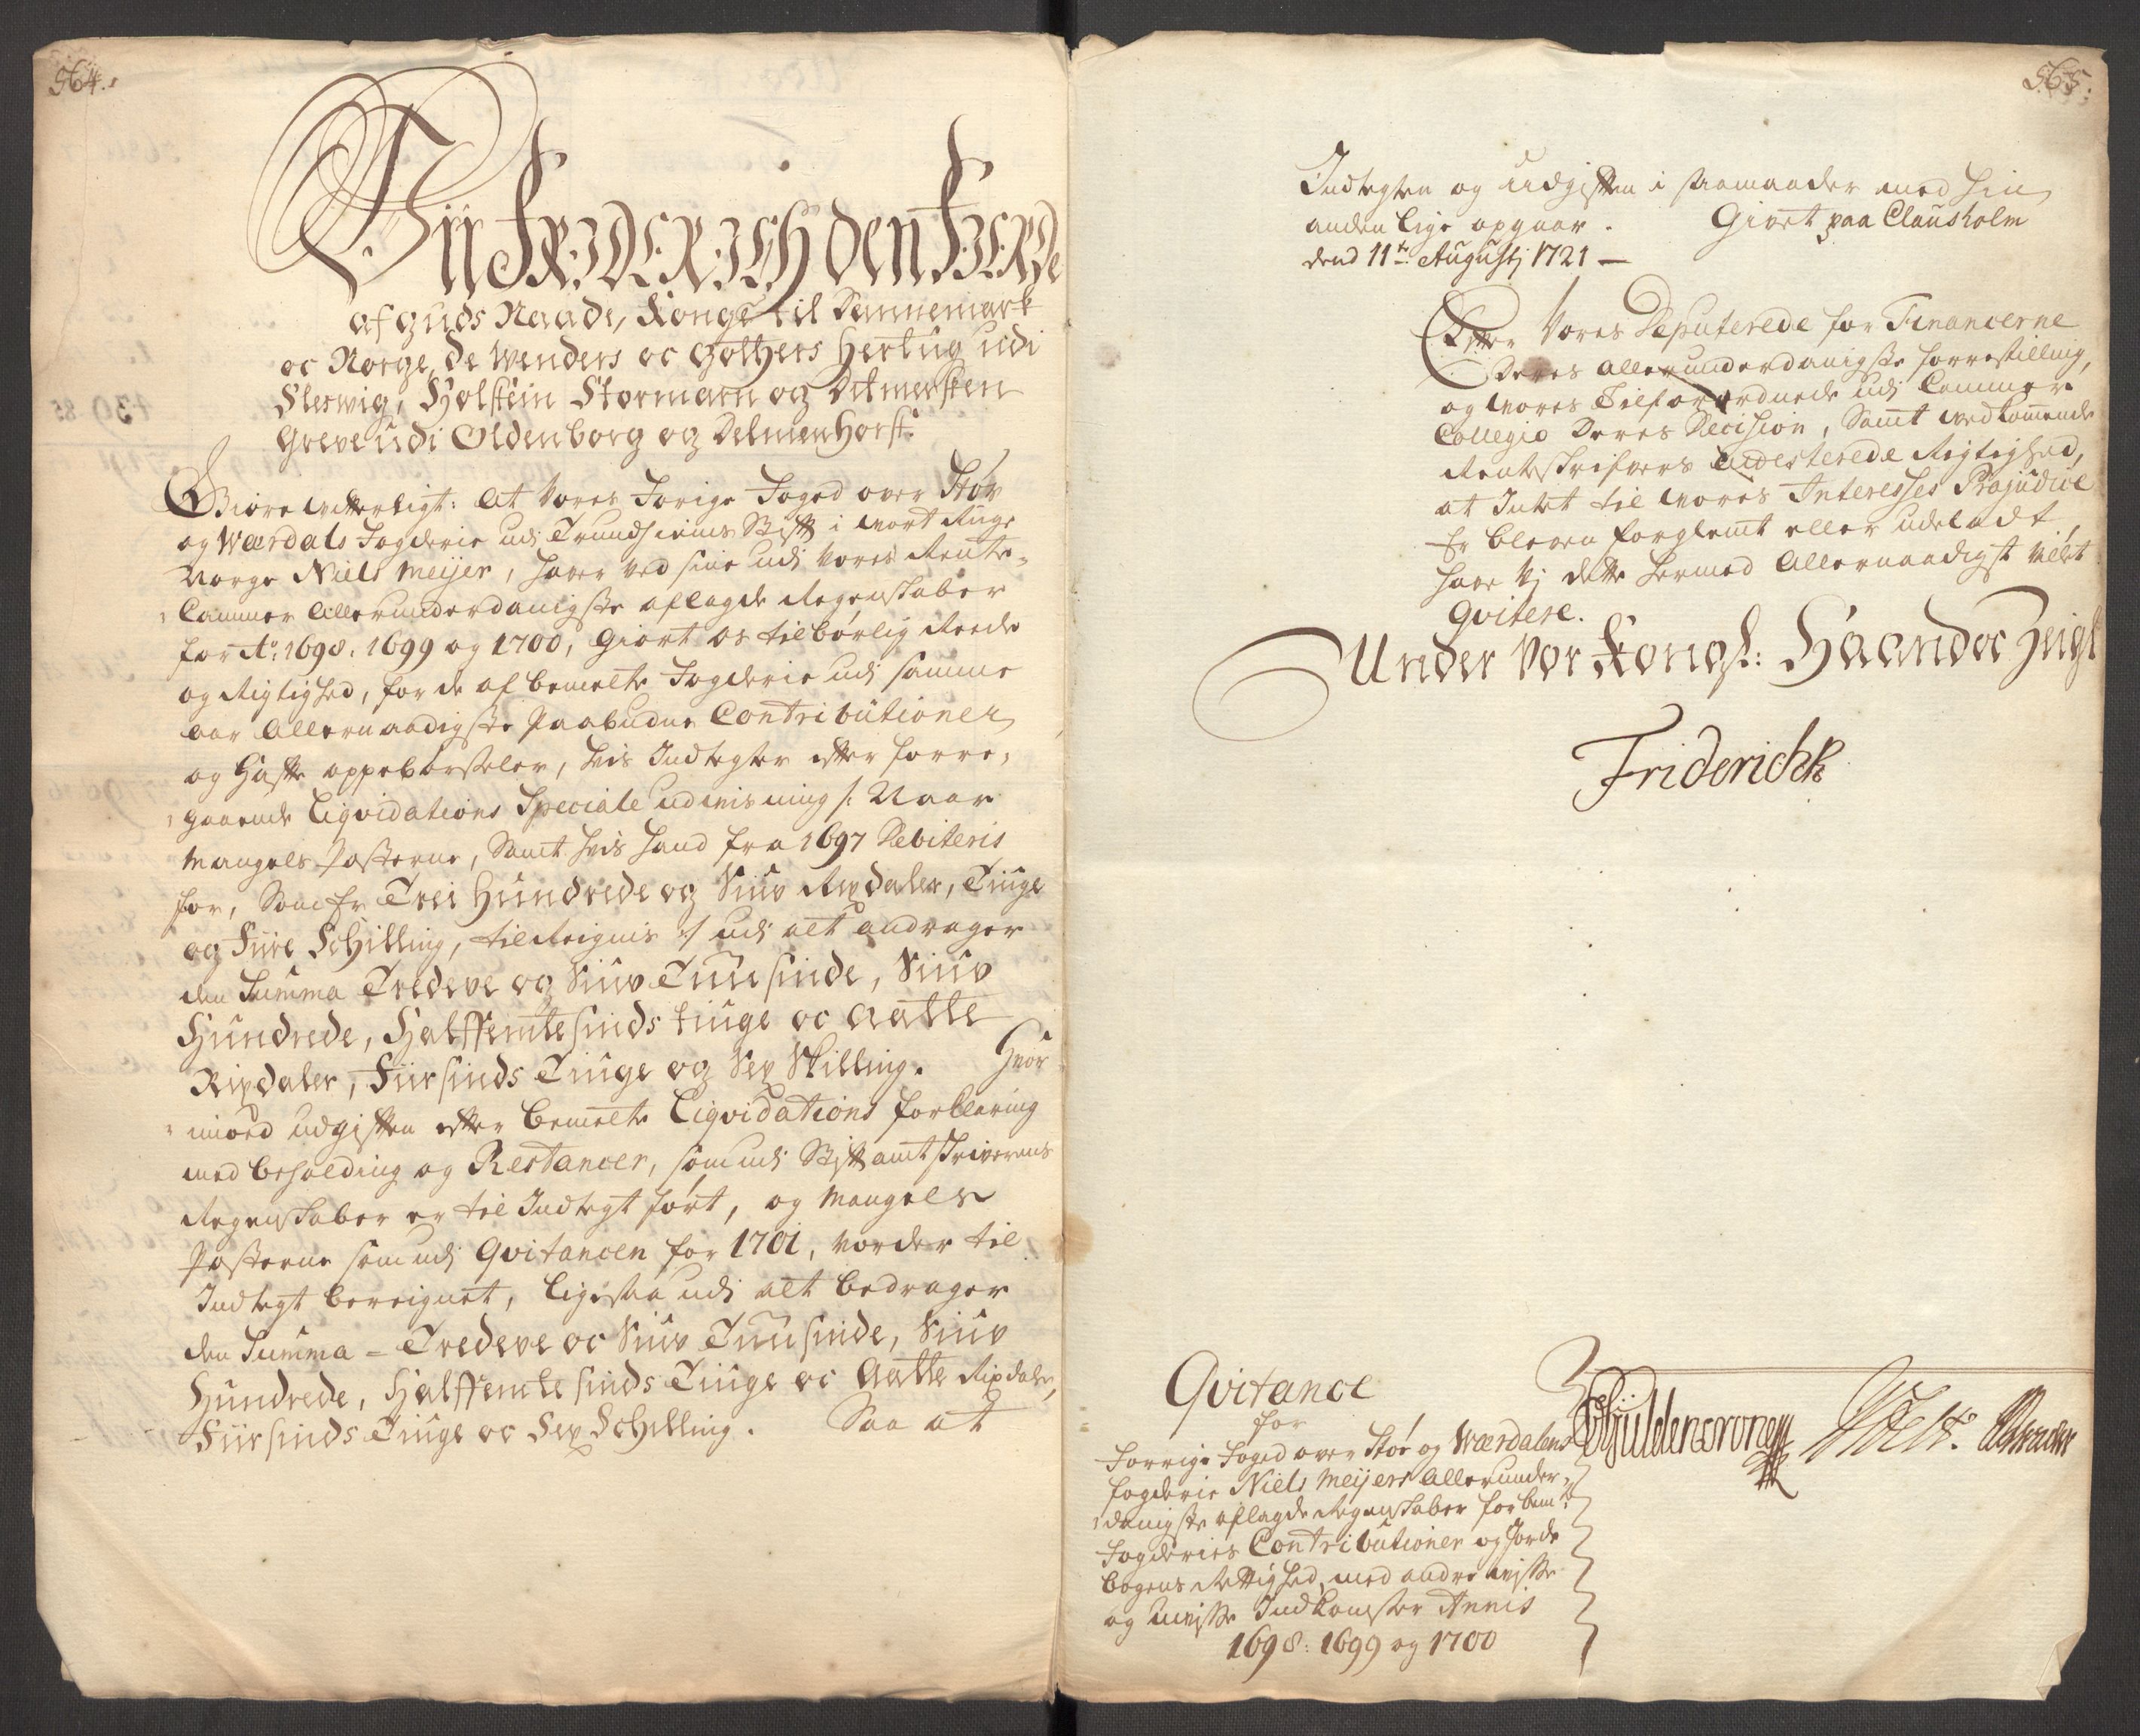 564.
Vii FRIDERICH den FIERDe
af Guds Naade, Konge til Dannemark
oc Norge, de Wenders oc Gothers Hertug udi
Sleswig, Holstein Stormarn og Ditmersken
Greve udi Oldenborg og Delmenhorst.
Giøre witterligt: At Vores Forige Foged over Stør
og Wærdals Fogderie udj Trundhiems Stift i wort Rige
Norge Niels Meijer, haver ved sine udj Vores Rente-
Cammer Allerunderdanigste aflagde Regenskaber
for Ao: 1698. 1699 og 1700, Giort os tilbørlig Reede
og Rigtighed, for de af bemelte Fogderie udj samme
Aar Allernaadigste Paabudne Contributioner
og Haffte oppebørseler, hvis Indtegter efter forre-
gaaende Liqvidations Speciale udwisning /: Naar
Mangels Posterne, Samt hvis hand fra 1697 Debiteris
for, Som Er Trei Hundrede og Siuv Rixdaler, Tiuge
og Fiire Schilling, tilReignis :/ udj alt andrager
den Summa Tredeve og Siuv Tuusinde, Siuv
Hundrede, Halffemtesinds tiuge oc Aatte
Rixdaler, Fiirsinds Tiuge og Sex Skilling. Hvor
imod udgiften efter bemelte Liqvidations forklaring
med beholding og Restancer, som udj Stiftamtskriverens
Regenskaber er til Indtegt ført, og Mangels
Posterne som udj Qvitancen for 1701, vorder til
Indtegt bereignet, ligesaa udj alt bedrager
den Summa = Tredeve oc Siuv Tuusinde, Siuv
Hundrede, Halffemte sinds Tiuge oc Aatte Rixdaler,
Fiirsinds Tiuge oc Sex Schilling. Saa at
565.
Indtegten og Udgiften i saamaader med hin
anden lige opgaar. Givet paa Clausholm
dend 11te Augustj 1721 —
Efter Vores Deputerede for Financerne
Deres Allerunderdanigste forrestilling,
og Vores Tilforordnede udj Cammer
Collegio Deres Decision, Samt wedkommende
Renteskrifvers Attesterede Rigtighed,
at Intet til Vores Interesses Præjudice
Er bleven forglemt eller udeladt,
have Vj dette hermed Allernaadigst vilet
qvitere.
Under Vor Kongl: Haand oc Zeigl
Friderich R
Qvitance
for
Forrige Foged over Stør og Wærdalens
fogderie Niels Meijers Allerunder-
danigste aflagde Regenskaber for bemte
Fogderies Contributioner og Jorde
bogens Rettighed, med andre wisse
og uwisse Indkomster Annis
1698: 1699 og 1700
Güldencrone